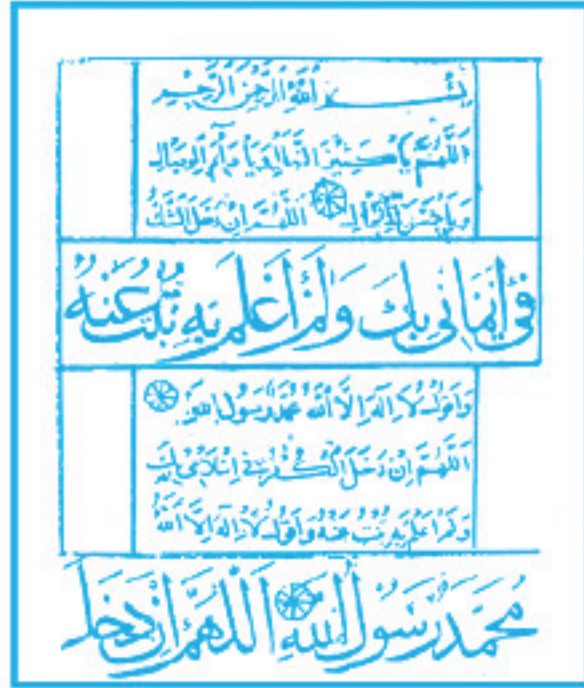 بسم الله الرحمن الرحيم
اللهم يا كثير النوال ويا دائم الوصال
ويا حسن اللهم ان دخل الشك
في إيماني بك ولم أعلم به تبت عنه
وأقول لا إله إلا الله محمد رسول الله
اللهم إن دخل الكفر في إسلامي بك
ولم أعلم به تبت عنه وأقول لا إله إلا الله
محمد رسول الله اللهم إن دخل